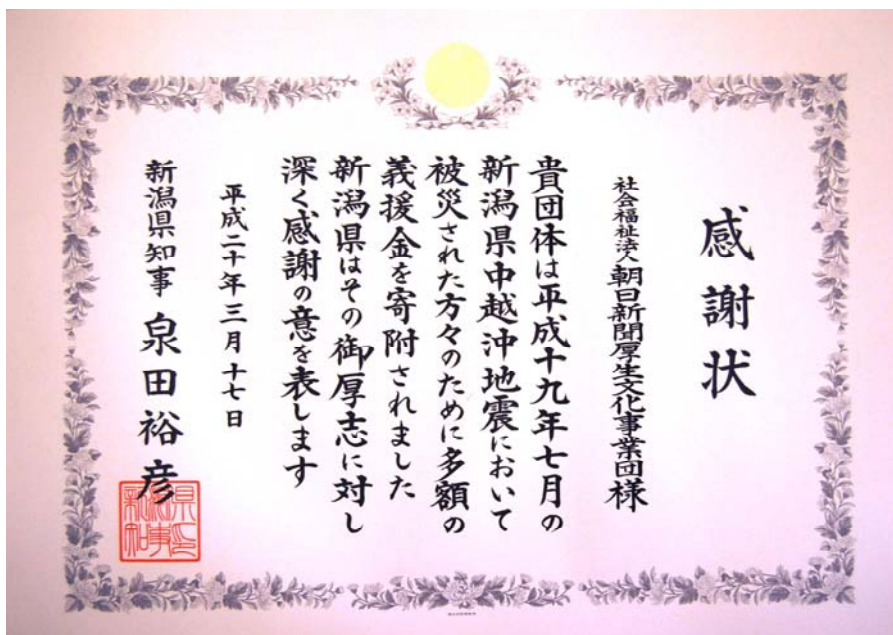 感謝状
社会福祉法人 朝日新聞厚生文化事業団様
貴団体は平成十九年七月の
新潟県中越沖地震において
被災された方々のために多額の
義援金を寄附されました
新潟県はその御厚志に対し
深く感謝の意を表します
平成二十年三月十七日
新潟県知事 泉田裕彦